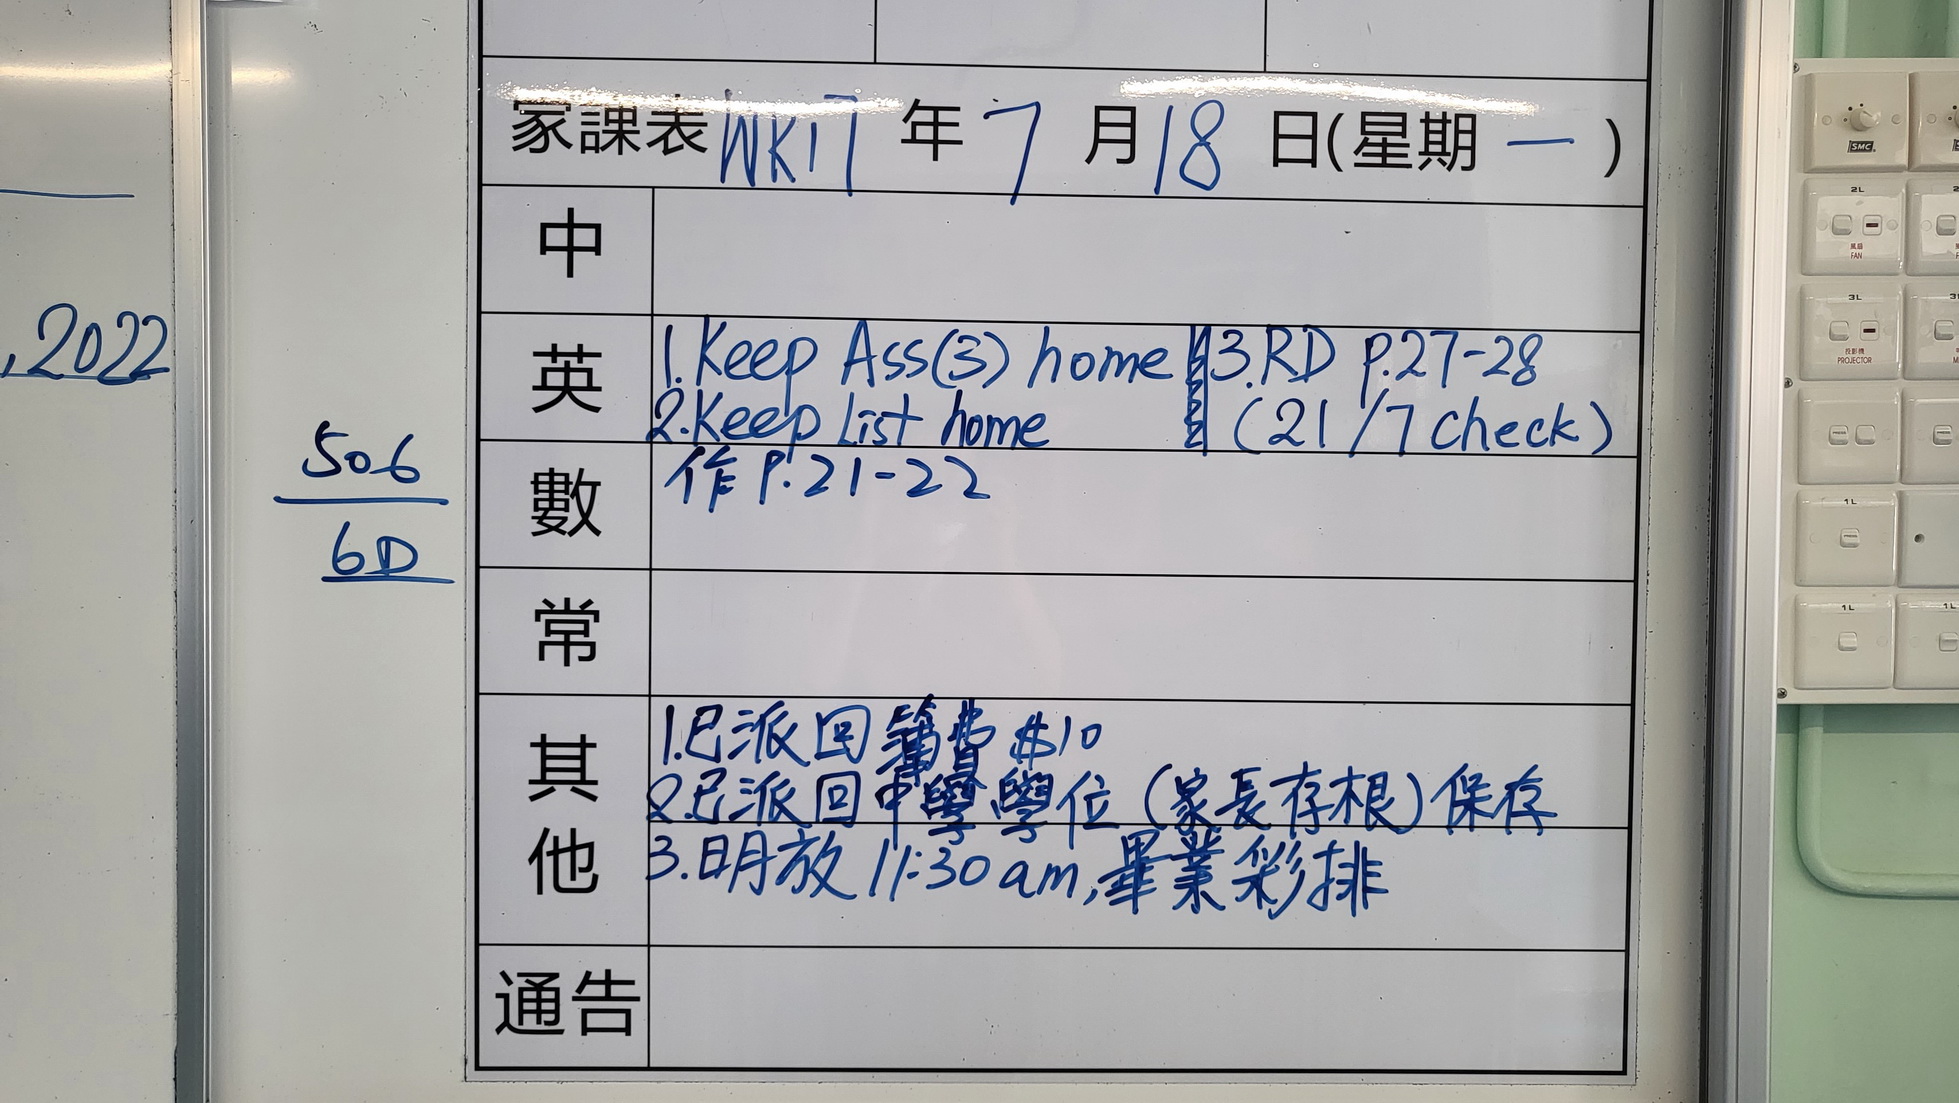 , 2022
506
6D
家課表 WK17 年 7 月 18 日(星期 一 )
中
英
1. Keep Ass(3) home
2. Keep List home
3. RD P.27-28
(21/7 check)
數
作 P.21-22
常
其他
1. 已派回簿費 $10
2. 已派回中學學位 (家長存根) 保存
3. 明放 11:30 am, 畢業彩排
通告
SMC
2L
風扇
FAN
3L
投影機
PROJECTOR
1L
1L
1L